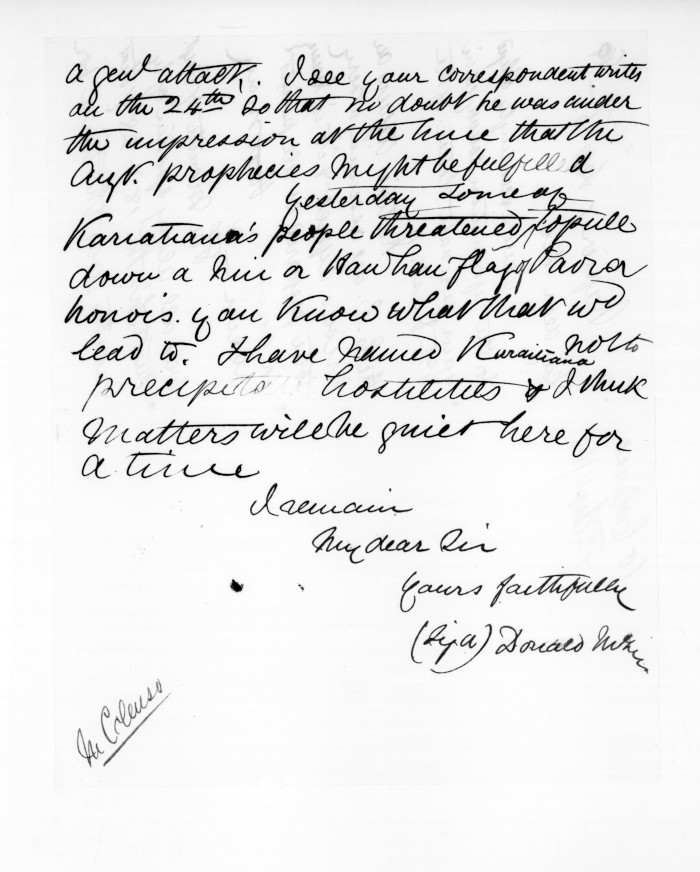 a genl attack. I see your correspondent writes
on the 24th, so that no doubt he was under
the impression at the time that the
Augt. prophecies might be fulfilled
Yesterday some of
Karaitiana's people threatened to pull
down a Niu or Hau hau flag of Paora
you know what that wd
lead to. I have warned Karaitiana not to
precipitate hostilities & I think
matters will be quiet here for
a time
I remain
My dear Sir
Yours faithfully
(Sigd) Donald McLean
Mr Colenso